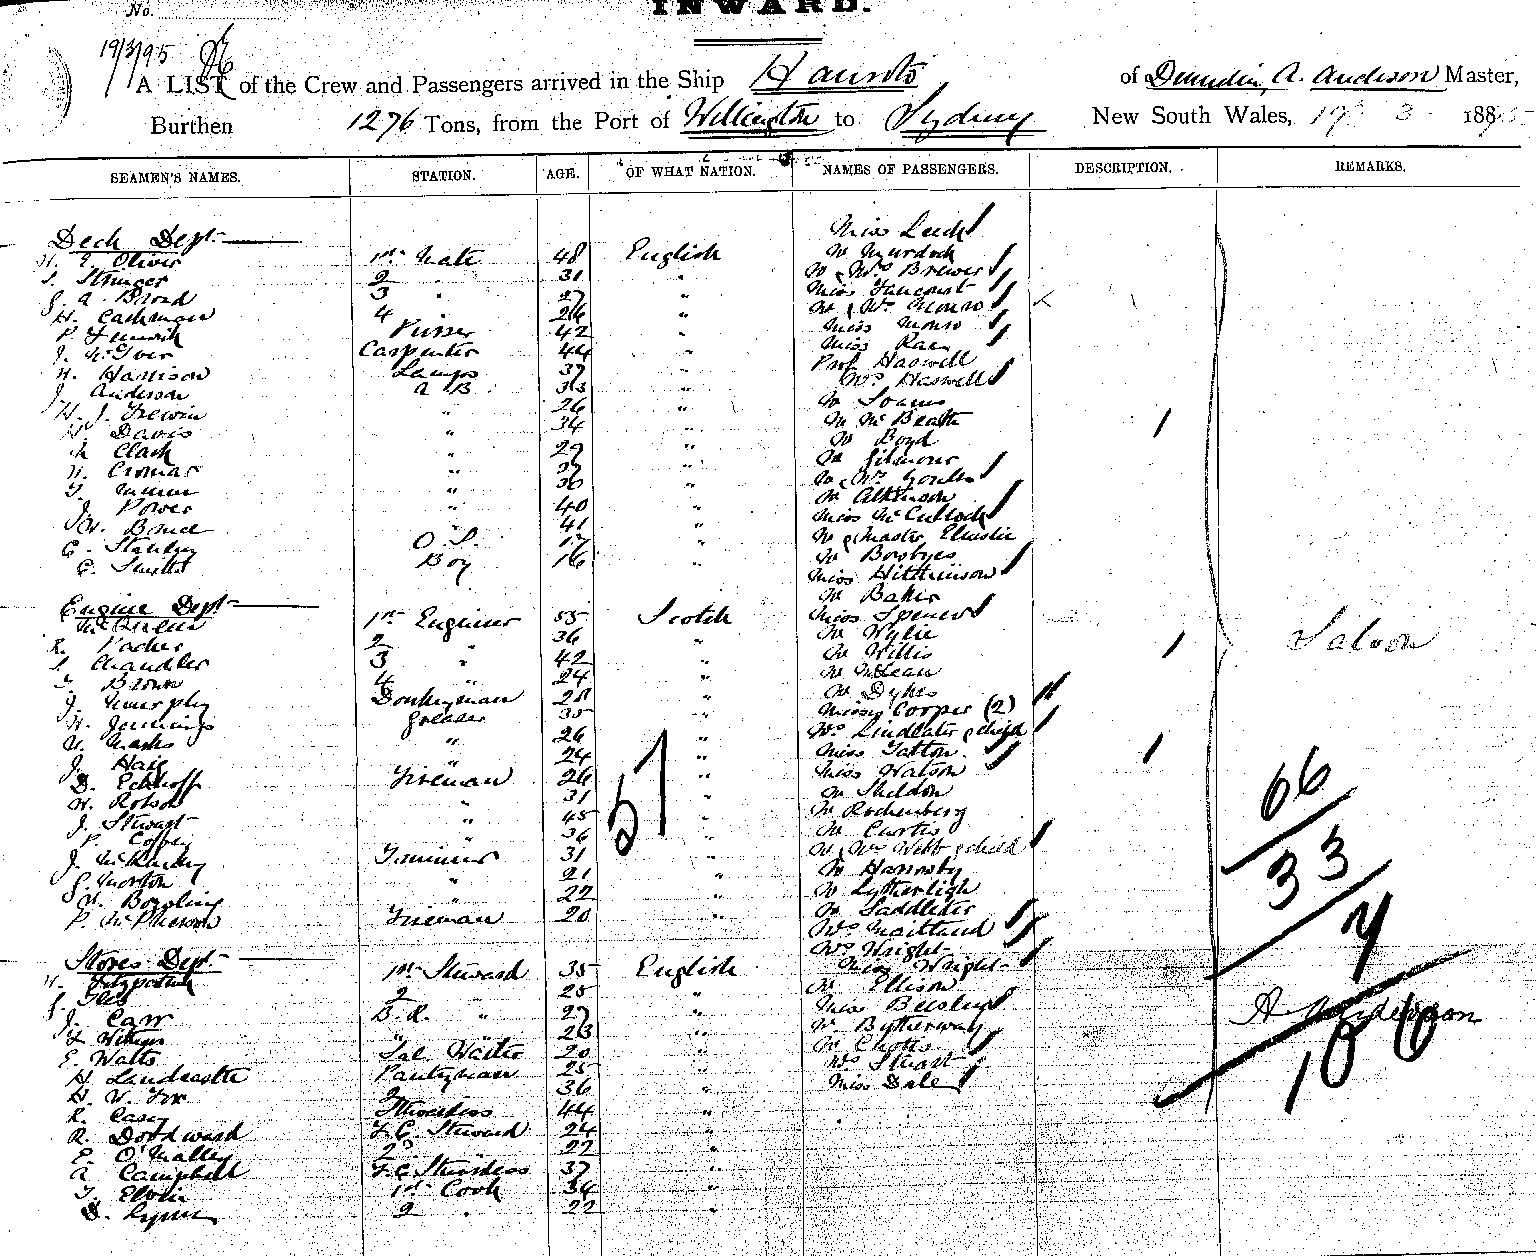 No.
INWARD.
19/3/95
A LIST of the Crew and Passengers arrived in the Ship Hauroto of Dunedin, A. Anderson Master,
Burthen 1276 Tons, from the Port of Wellington to Sydney New South Wales, 19 3 1895
SEAMEN'S NAMES. STATION. AGE. OF WHAT NATION. NAMES OF PASSENGERS. DESCRIPTION. REMARKS.
Deck Dept Miss Leech
Oliver 1st Mate 48 English Mr Murdoch
S. Stringer 2 " 31 " Mr & Mrs Brewer
G. A. Broad 3 " 27 " Miss Fancourt
H. Cashman 4 26 " Mr & Mrs Monro
P. Fenwick Purser 42 " Miss Monro
J. McIver Carpenter 44 " Miss
W. Harrison Lamps 37 " Prof Haswell
J. Anderson A B 33 " Mrs Haswell
H. J. Trewin " 26 " Mr Soames
H. Davis " 34 " Mr McBeath
Clark " 29 " Mr Boyd
W. Cromar " 37 " Mr Gilmour
" 30 " Mr & Mrs
J. Power " 40 " Mr Atkinson
W. Bruce " 41 " Miss McCulloch
C. Stanley O. S. 17 " Mr & Master Elmslie
C. Boy 16 " Mr
Miss Hitchinson
Engine Dept Mr Baker
1st Engineer 55 Scotch Miss Spencer
R. 2 " 36 " Mr Wylie
S. Chandler 3 " 42 " Mr Willis
Brown 4 " 24 " Mr McLean
J. Murphy Donkeyman 28 " Mr Dykes
W. Jennings Greaser 35 " Misses Cooper (2)
Marks " 26 " Mrs Lindsater & child
J. Haig " 24 " Miss Tatton
D. Eckhoff Fireman 26 " Miss Watson
W. Robson " 31 " Mr Sheldon
J. Stewart " 45 " Mr Rochenberg
P. Coffey " 36 " Mr Curtis
J. Trimmer 31 " Mr & Mrs Webb & child
G. Morton " 21 " Mr
Bowling " 22 " Mr
P. McPherson Fireman 20 " Mr
Mrs Maitland
Stores Dept Mrs Wright
W. Fitzpatrick 1st Steward 35 English Miss Wright
2 25 " Mr Ellison
J. Carr B. R. " 27 " Miss Beesley
" " 23 " Mr Bytherway
E. Watts Sal Waiter 20 " Mr
H. Landcastle Pantryman 25 " Mrs Stuart
H. V. Fox 2 36 " Miss Dale
R. Casey Stewardess 44 "
R. F. C. Steward 24 "
E. O'Malley 2 " 22 "
A. Campbell F. C. Stewardess 37 "
Elvin 1st Cook 34 "
D. 2 " 22 "
Saloon
57
66
33
7
A Anderson
106